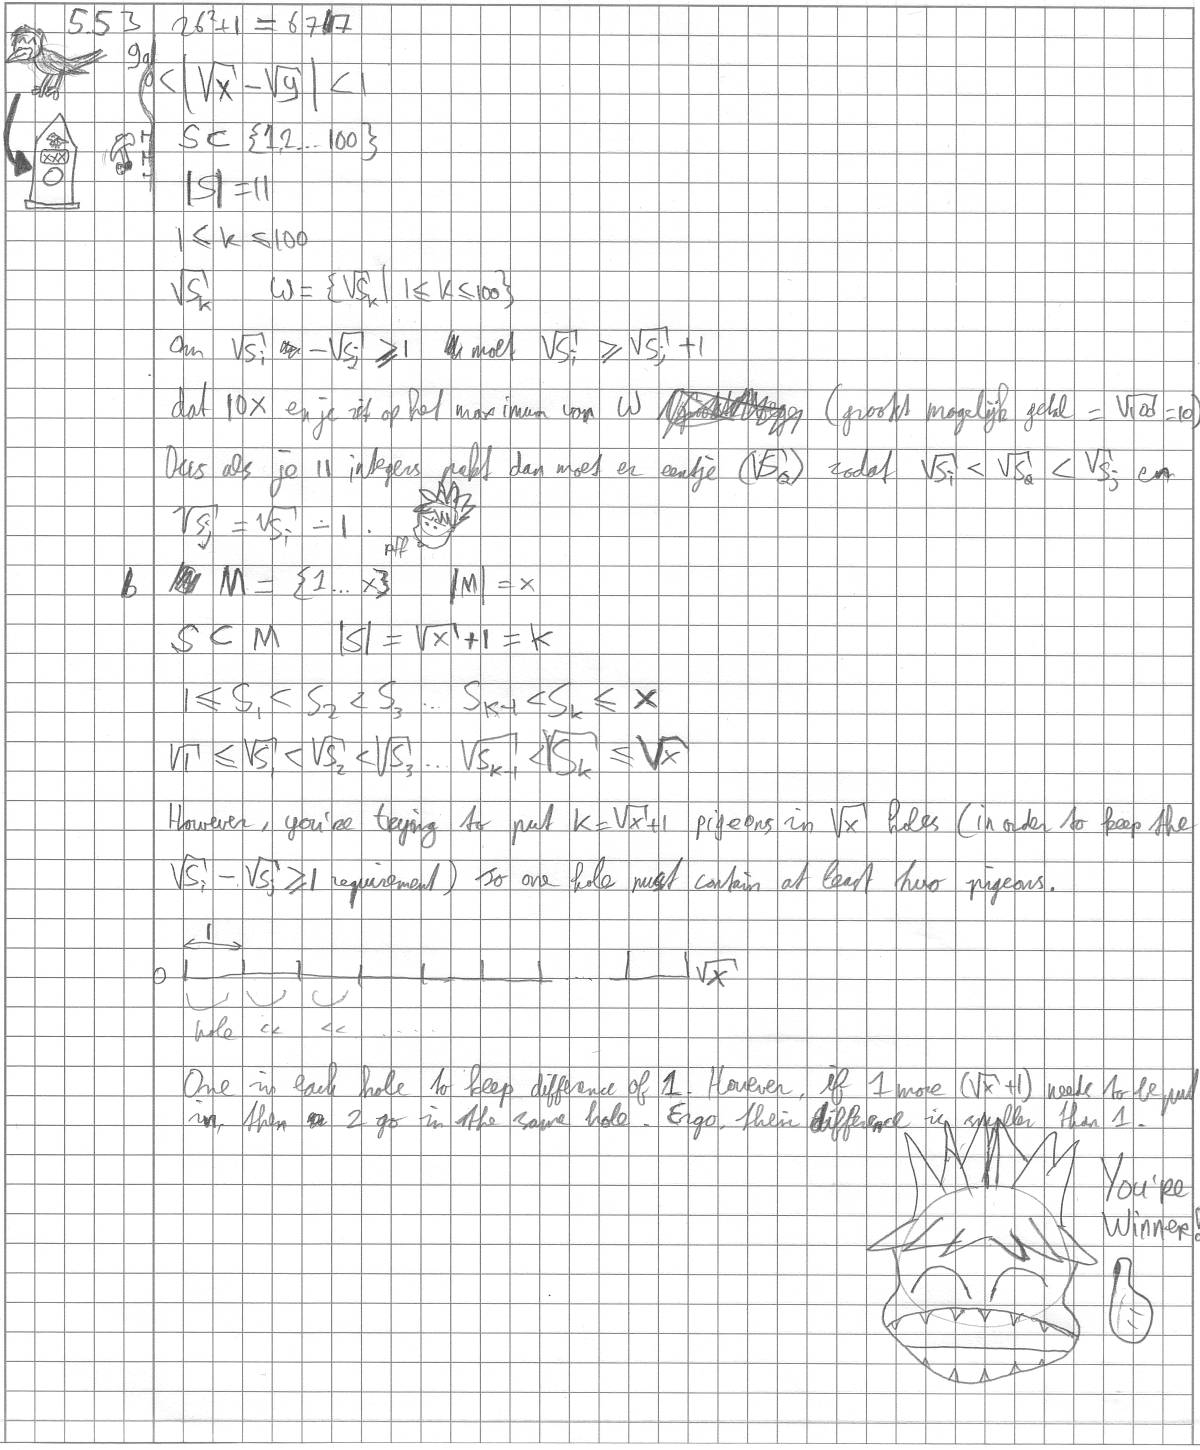 5.5 3 26²+1 = 677
9a 0 < |√x - √y| < 1
S ⊂ {1,2...100}
XXX
|S| = 11
1 ≤ k ≤ 100
√S_k W = {√S_k | 1 ≤ k ≤ 100}
Om √S_i - √S_j ≥ 1 moet √S_i ≥ √S_j + 1
dat 10x en je zit op het maximum van W (grootst mogelijk getal = √100 = 10)
Dus als je 11 integers pakt dan moet er eentje (√S_a) zodat √S_i < √S_a < √S_j en
√S_j = √S_i - 1.
pff
b M = {1... x} |M| = x
S ⊂ M |S| = √x + 1 = k
1 ≤ S_1 < S_2 < S_3 ... S_k-1 < S_k ≤ x
√1 ≤ √S_1 < √S_2 < √S_3 ... √S_k-1 < √S_k ≤ √x
However, you're trying to put k = √x+1 pigeons in √x holes (in order to keep the
√S_i - √S_j ≥ 1 requirement) so one hole must contain at least two pigeons.
1
0 ..... √x
hole << << .....
One in each hole to keep difference of 1. However, if 1 more (√x+1) needs to be put
in, then 2 go in the same hole. Ergo, their difference is smaller than 1.
You're
Winner!